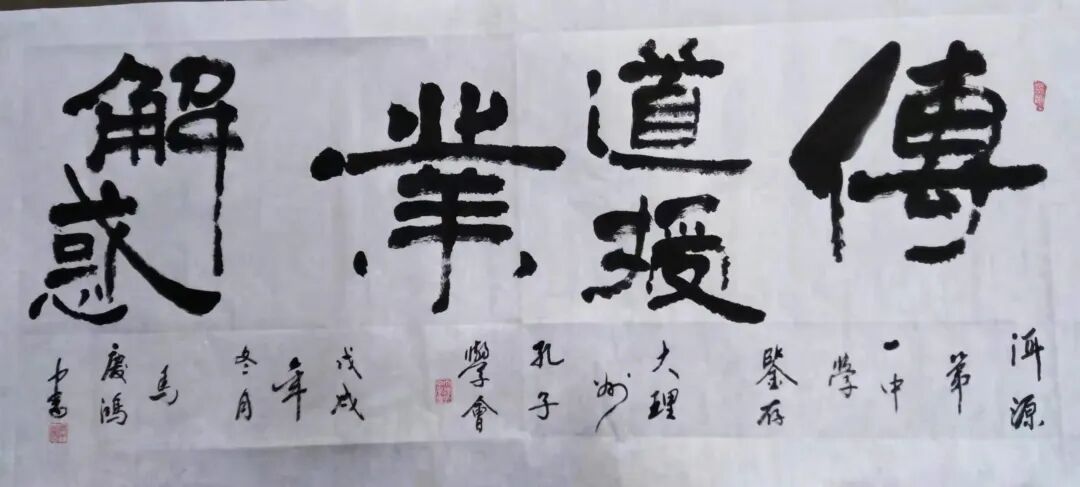 傳道授業解惑
洱源第一中學鑒存
大理州孔子學會
戊戌年冬月
馬慶鴻
書